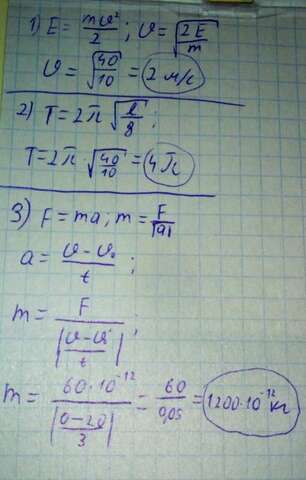 1) E = mυ²/2; υ = √(2E/m)
υ = √(40/10) = 2 м/с
2) T = 2π√(l/g);
T = 2π·√(40/10) = 4π
3) F = ma; m = F/|a|
a = (υ - υ₀)/t;
m = F/|(υ - υ₀)/t|;
m = 60·10⁻¹²/|(0 - 20)/3| = 60/0,05 = 1200·10⁻¹² кг